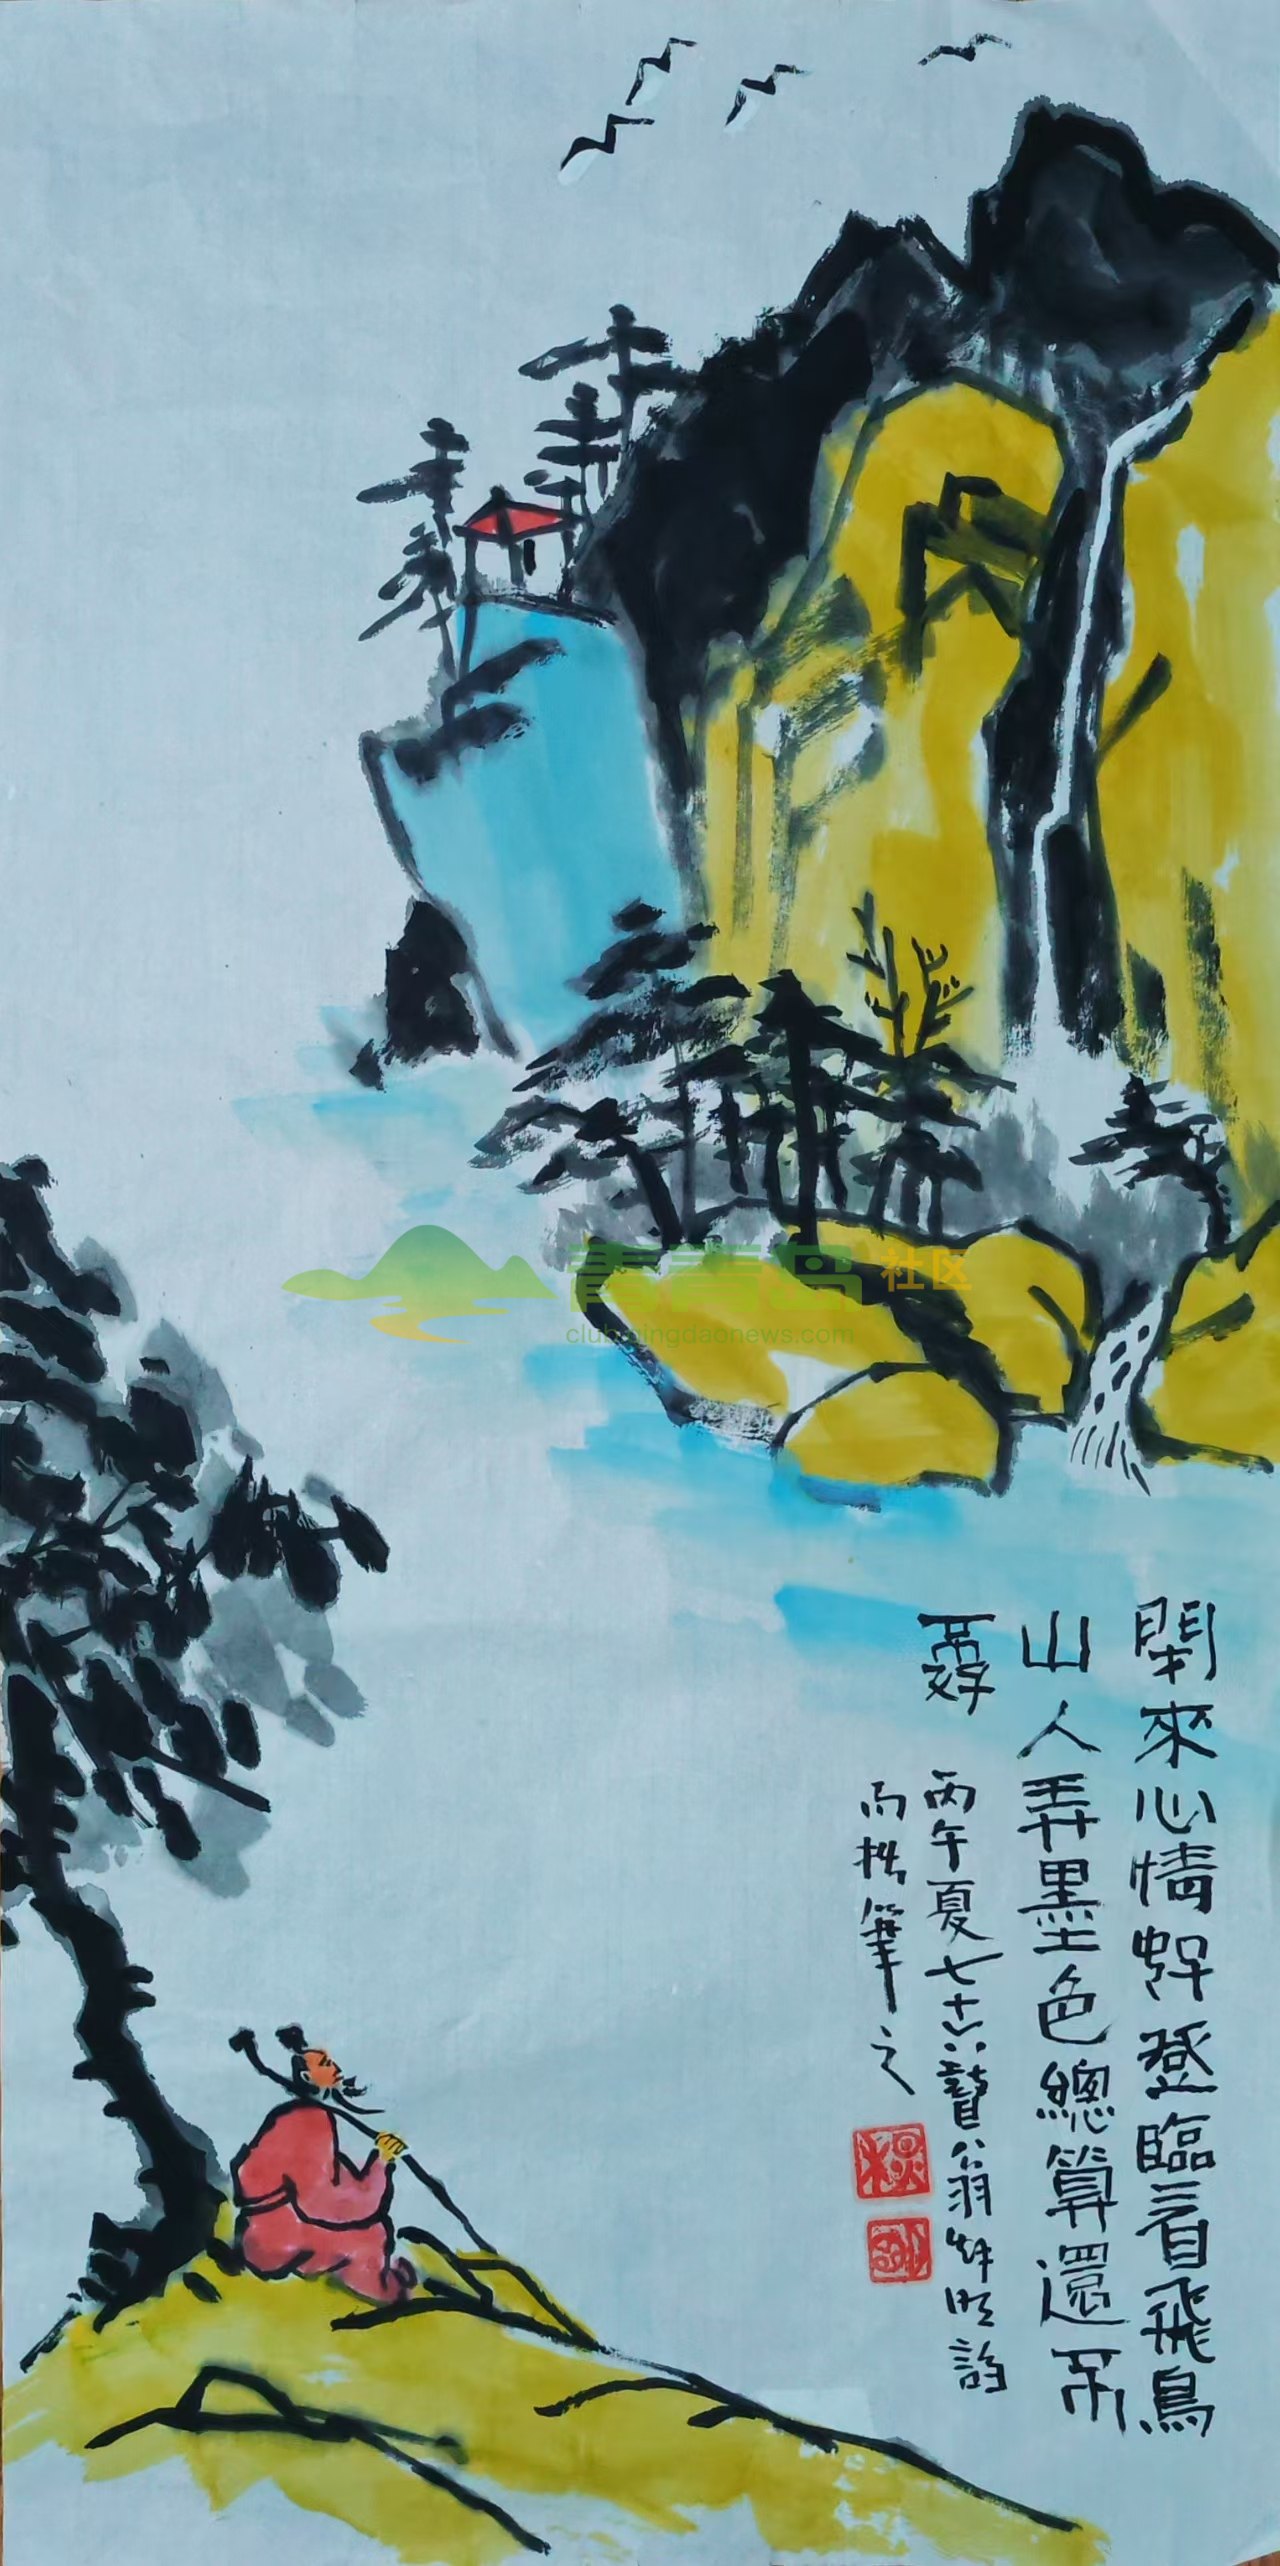 閑來心情好登臨看飛鳥
山人弄墨色總算還不
孬
丙午夏七十六瞽翁
而拙筆之
青青岛社区
club.qingdaonews.com